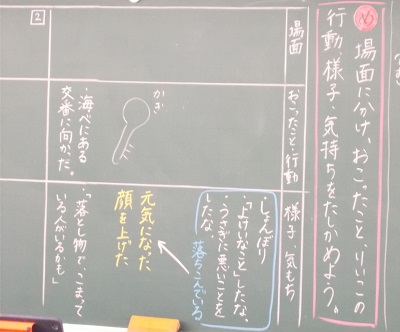 め 場面に分け、おこったこと、りいこの
行動、様子・気持ちをたしかめよう。
場面
おこったこと・行動
様子・気もち
しょんぼり
「よけいなこと」したな、
・うさぎに悪いことを
したな、
落ちこんでいる
元気になった
顔を上げた
かぎ
・海べにある
交番に向かった。
・「落とし物で、こまって
いる人がいるかも」
2